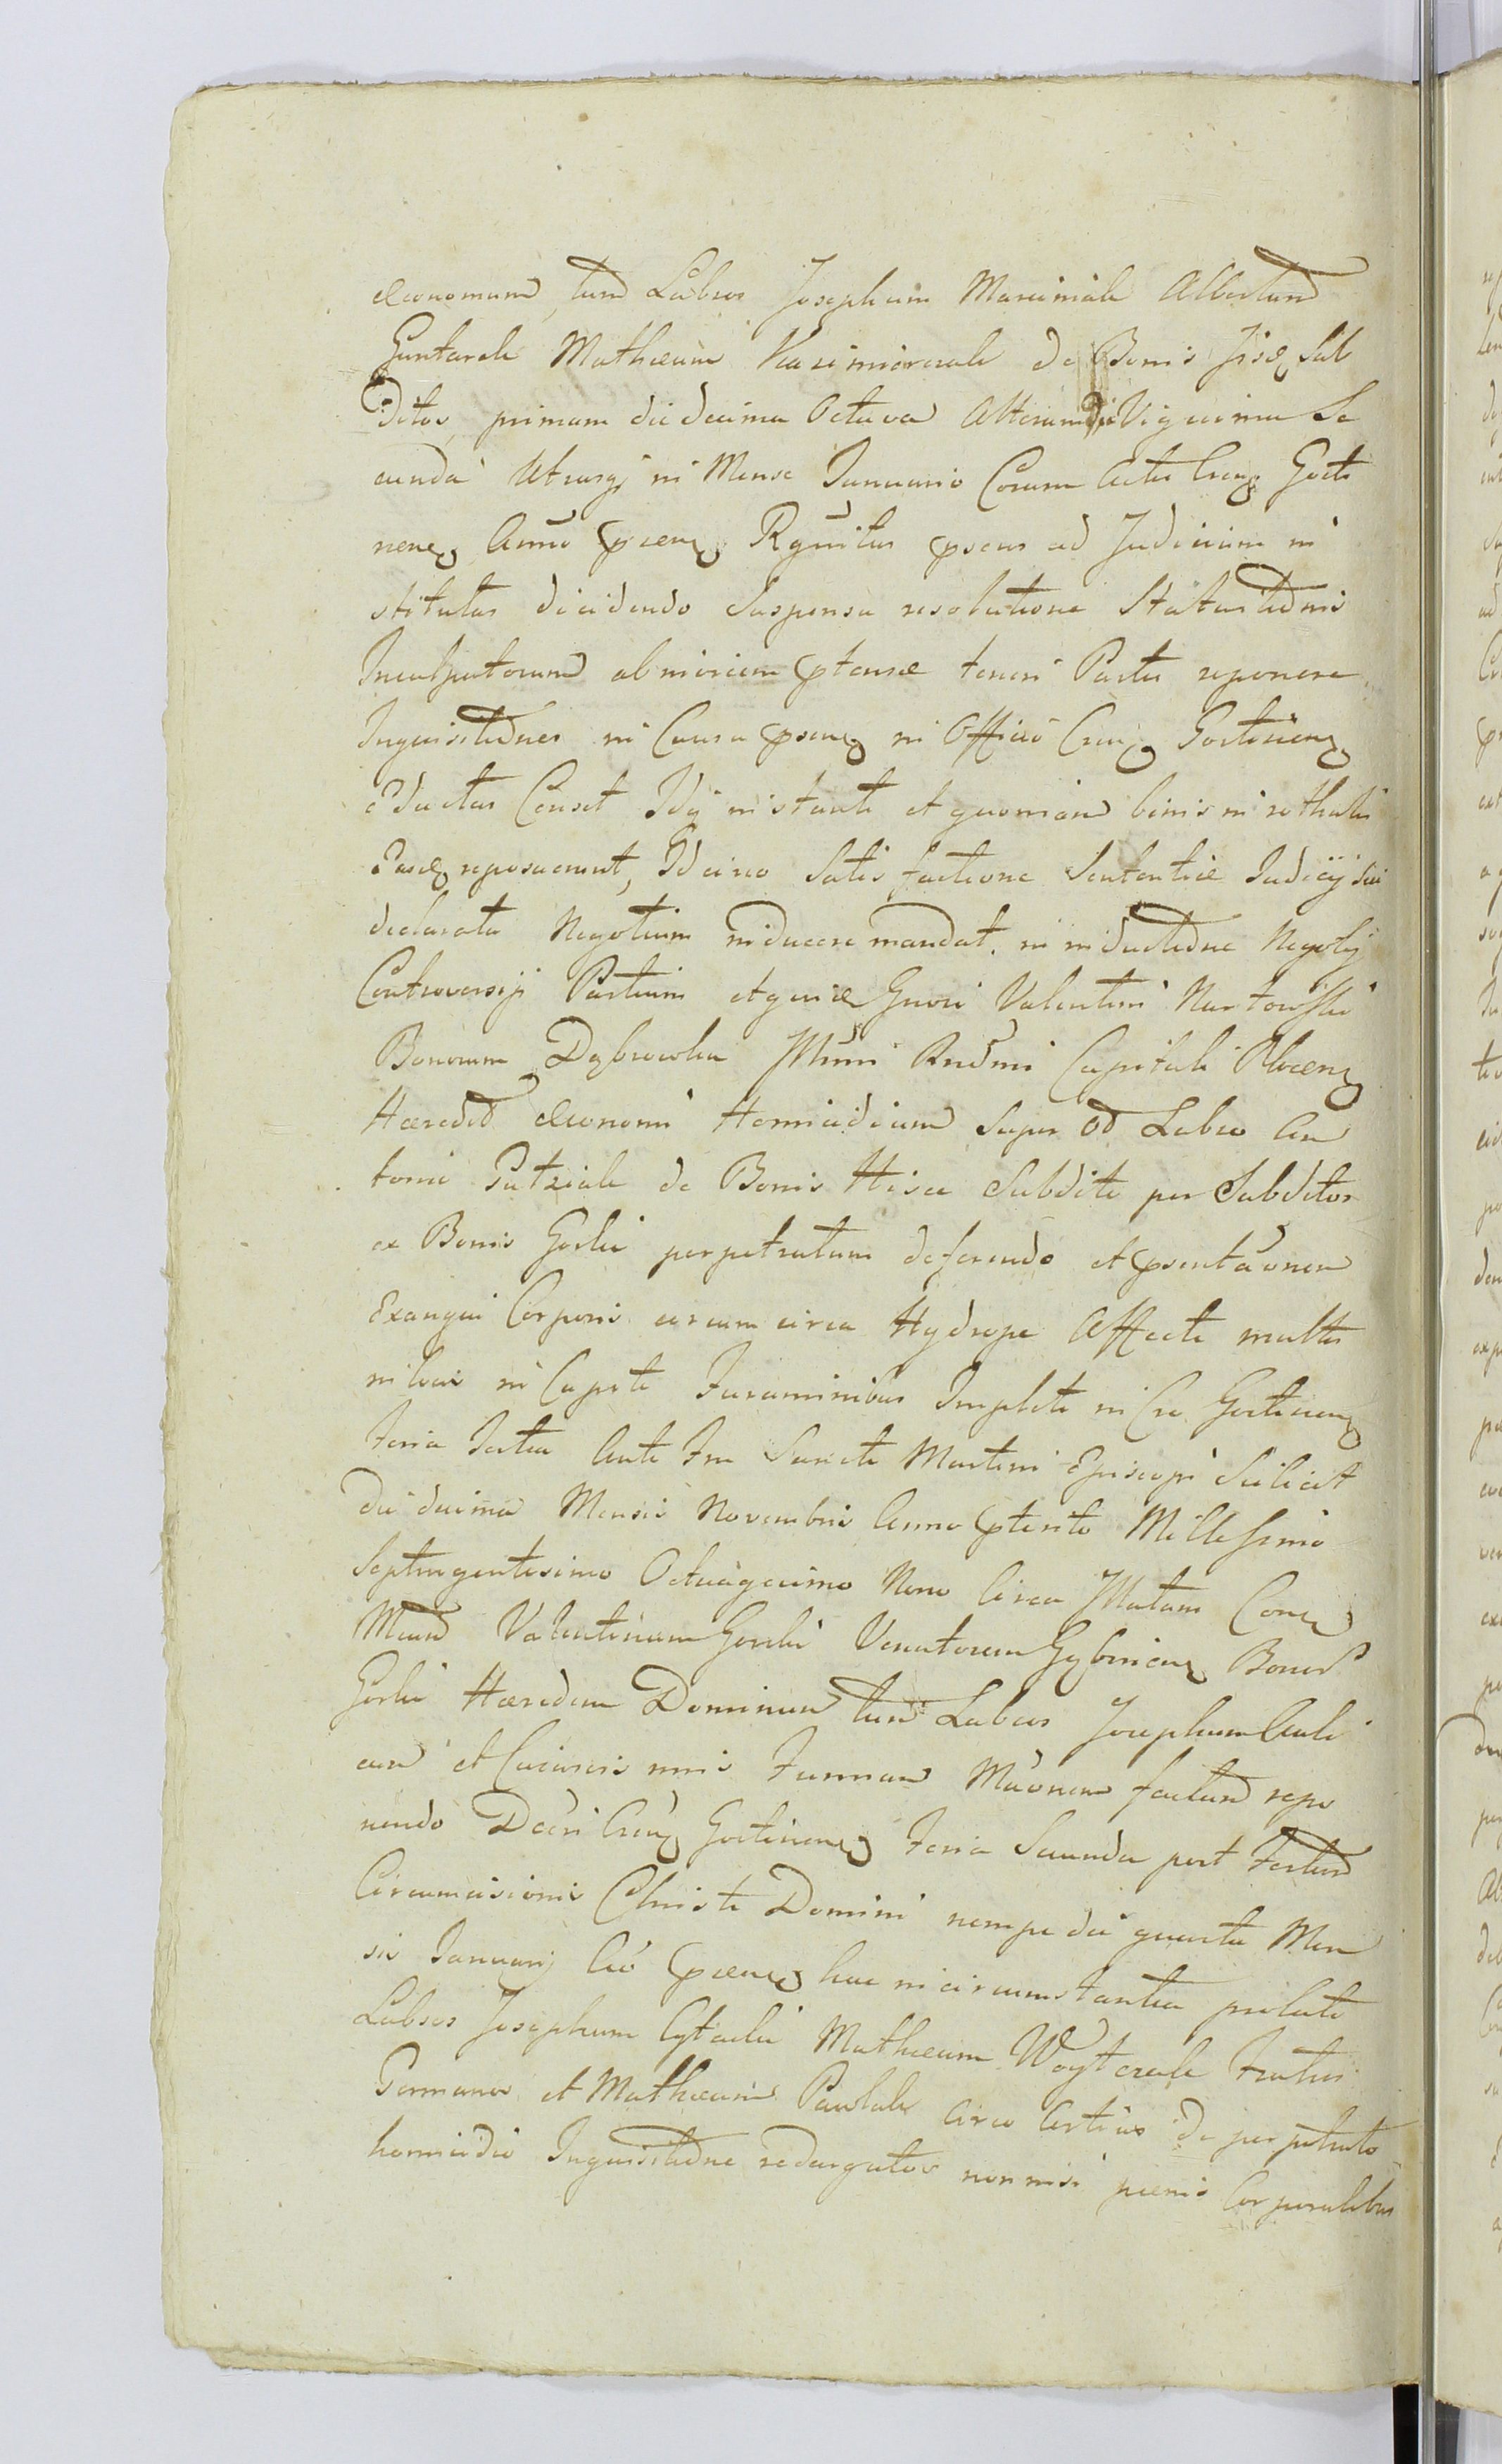 œconomum, tum Labros Josephum Marciniak Albertum
Guntarek Mathæum Kazimierczak de Bonis Jisd Sub
ditos, primam die decima Octava Alteram die Vigesima Se
cunda Utrasq in Mense Januario Coram Actis Cren Gosti
nen Anno præn Rgnitas psens ad Judicium in
stitutas decidendo Suspensa resolutione Status
Inculpatorum ob ptensæ teneri Partes reponere
Inquisitiones in Causa psen in Officio Cren Gostinen
eductas Censet Idq instanti et quoniam binis in rothulis
repo­suerunt, Idcirco Satisfactione Sententiæ Judicij sui
declarata Negotium inducere mandat. in inductione Negotij
Controversiji Partium atque Gnosi Valentini Nartowski
Bonorum Dąbrowka Illmi Rndmi Capituli Plocen
Hæredit œconomi Homicidium super od Labro An
tonio Patziak de Bonis Hisce Subdito per Subditos
ex Bonis Gorki perpetratum deferendo et psentaonem
Exangui Corporis circum circa Hydrope Affecti multis
in locis in Capite Foraminibus Impleti in Cro Gostinen
Feria Tertia Ante Fm Sancti Martini Episcopi Scilicet
die decima Mensis Novembris Anno pterito Millesimo
Septingentesimo Octuagesimo Nono Circa Illatam Con
Mcum Valentinum Gorski Venatorem Gąbinen Bonor
Gorki Hæredem Dominum tum Labros Josephum
cum et Cæteris nris Factum repo
nendo Decri Cren Gostinen Feria Secunda post Festum
Circumcisionis Christi Domini nempe die quarta Men
sis Januarij Ao præn hac in circumstantia prolati
Labros Josephum Cytacki Mathæum Woytczak Fratres
Germanos et Mathæum Pawlak Circa Certius de perpetrato
homicidio Inquisitione redargutos non nisi pœnis Corporalibus